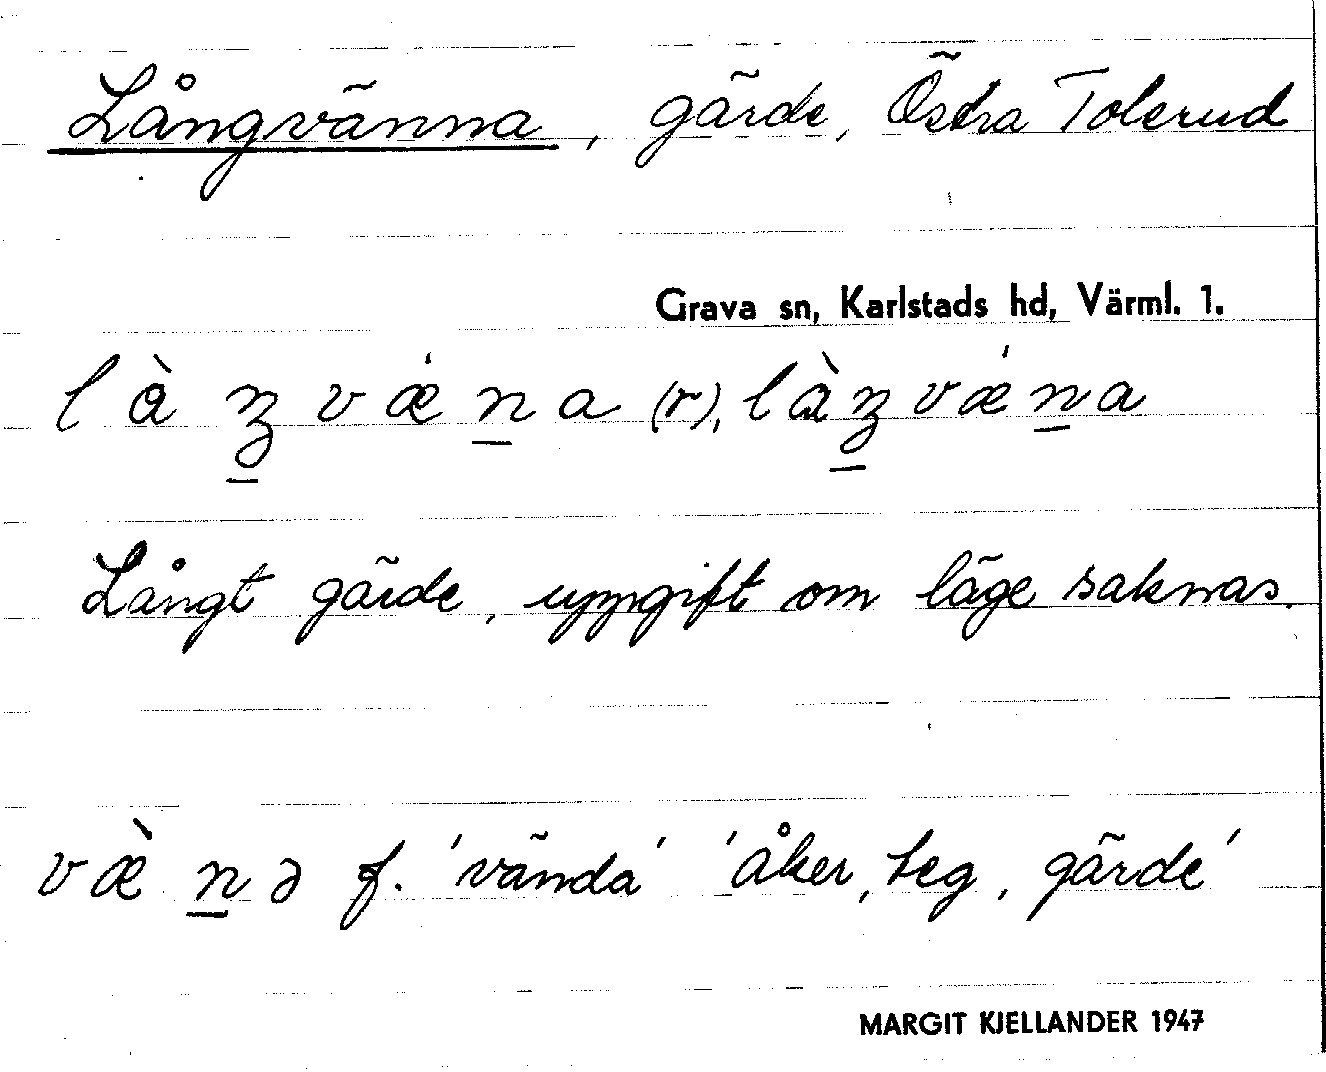 Långvänna, gärde, Östra Tolerud
Grava sn, Karlstads hd, Värml. 1.
làŋvǽna (r), làŋvǽna
Långt gärde, uppgift om läge saknas.
væ̀nə f. 'vända' 'åker, teg, gärde'
MARGIT KJELLANDER 1947